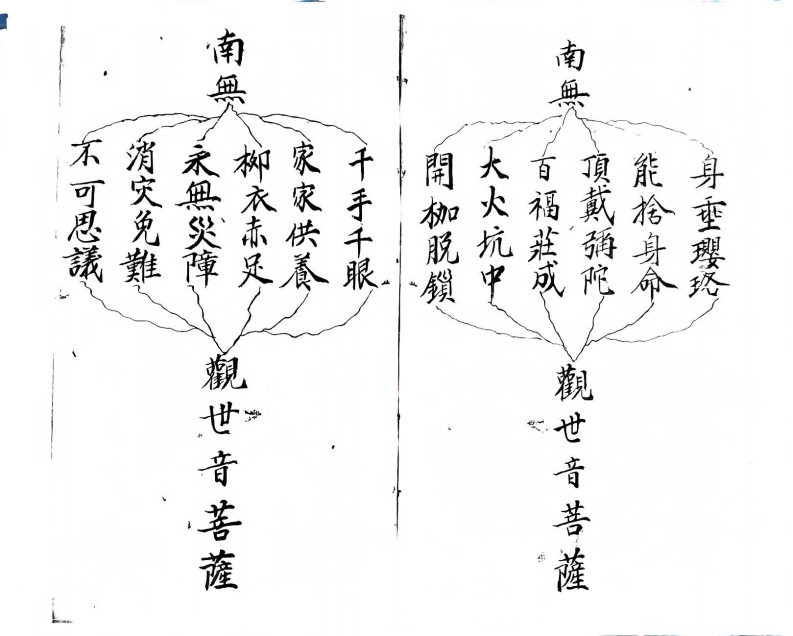 南無
身垂瓔珞
能捨身命
頂戴彌陀
百福莊成
大火坑中
開枷脱鎖
觀世音菩薩
南無
千手千眼
家家供養
柳衣赤足
永無災障
消灾免難
不可思議
觀世音菩薩